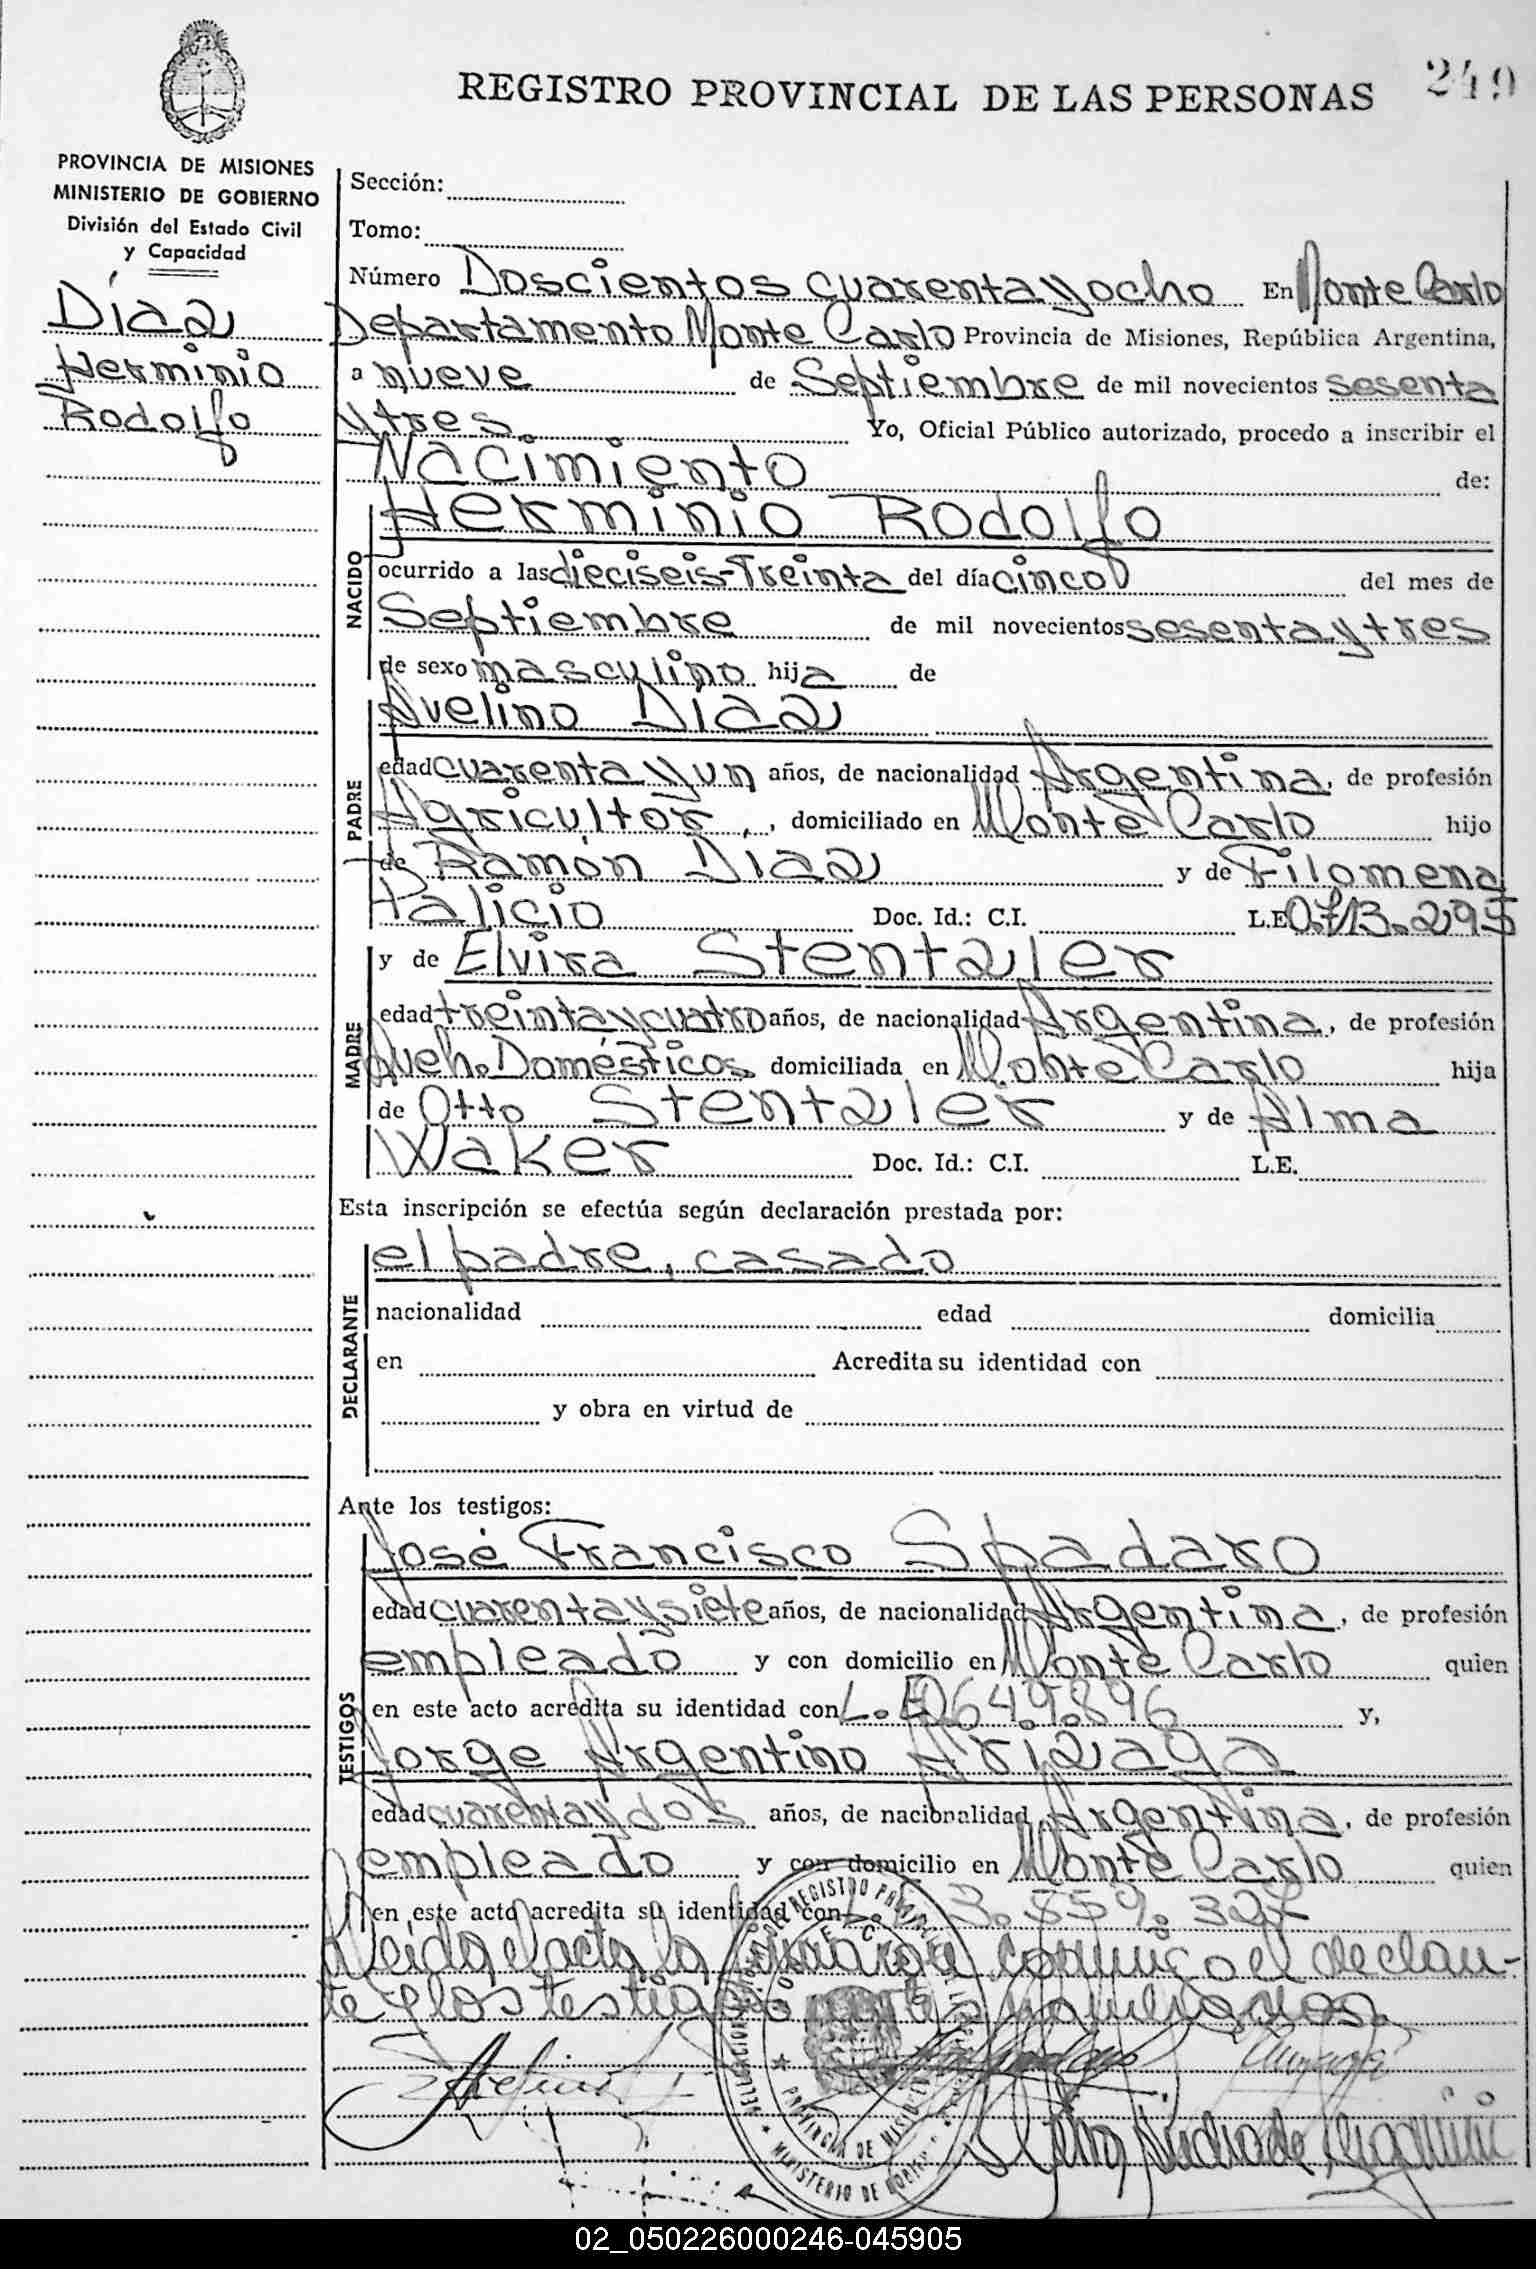 249
REGISTRO PROVINCIAL DE LAS PERSONAS
PROVINCIA DE MISIONES
MINISTERIO DE GOBIERNO
División del Estado Civil
y Capacidad
Díaz
Herminio
Rodolfo
Sección:
Tomo:
Número Doscientos cuarenta y ocho En Monte Carlo
Departamento Monte Carlo Provincia de Misiones, República Argentina,
a nueve de Septiembre de mil novecientos sesenta
y tres Yo, Oficial Público autorizado, procedo a inscribir el
Nacimiento de:
NACIDO
Herminio Rodolfo
ocurrido a las dieciseis-Treinta del día cinco del mes de
Septiembre de mil novecientos sesenta y tres
de sexo masculino hija de
PADRE
Avelino Díaz
edad cuarenta y un años, de nacionalidad Argentina, de profesión
Agricultor, domiciliado en Monte Carlo hijo
de Ramón Díaz y de Filomena
Palicio Doc. Id.: C.I. L.E. 0.713.295
MADRE
y de Elvira Stentzler
edad treinta y cuatro años, de nacionalidad Argentina, de profesión
Queh. Domésticos domiciliada en Monte Carlo hija
de Otto Stentzler y de Alma
Waker Doc. Id.: C.I. L.E.
Esta inscripción se efectúa según declaración prestada por:
DECLARANTE
el padre, casado
nacionalidad edad domicilia
en Acredita su identidad con
y obra en virtud de
Ante los testigos:
TESTIGOS
José Francisco Spadaro
edad cuarenta y siete años, de nacionalidad Argentina, de profesión
empleado y con domicilio en Monte Carlo quien
en este acto acredita su identidad con L.E. 0649.896 y,
Jorge Argentino Arizaga
edad cuarenta y dos años, de nacionalidad Argentina, de profesión
empleado y con domicilio en Monte Carlo quien
en este acto acredita su identidad con L. 3.559.327
Leida el acta la firman conmigo el declaran-
te y los testigos
REGISTRO PROVINCIAL
PROVINCIA DE MISIONES
MINISTERIO DE GOBIERNO
02_050226000246-045905